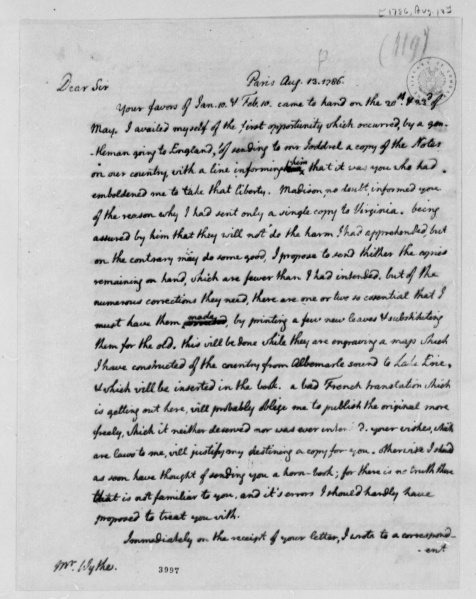 [1786, Aug 13]
(119)
Paris Aug. 13. 1786.
Dear Sir
Your favors of Jan. 10. & Feb. 10. came to hand on the 20th. & 23d of
May. I availed myself of the first opportunity which occurred, by a gen-
-tleman going to England, of sending to mr Joddrel a copy of the Notes
on our country, with a line informing him that it was you who had
emboldened me to take that liberty. Madison, no doubt, informed you
of the reason why I had sent only a single copy to Virginia. being
assured by him that they will not do the harm I had apprehended, but
on the contrary may do some good, I propose to send thither the copies
remaining on hand, which are fewer than I had intended. but of the
numerous corrections they need, there are one or two so essential that I
must have them made, by printing a few new leaves & substituting
them for the old. this will be done while they are engraving a map which
I have constructed of the country from Albemarle sound to Lake Erie,
& which will be inserted in the book. a bad French translation which
is getting out here, will probably oblige me to publish the original more
freely, which it neither deserved nor was ever intended. your wishes, which
are laws to me, will justify my destining a copy for you. otherwise I should
as soon have thought of sending you a horn-book; for there is no truth there
that is not familiar to you, and it's errors I should hardly have
proposed to treat you with.
Immediately on the receipt of your letter, I wrote to a correspond-
-ent
Mr. Wythe.
3997